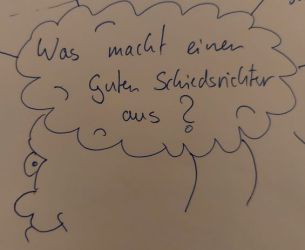 Was macht einen
guten Schiedsrichter
aus?